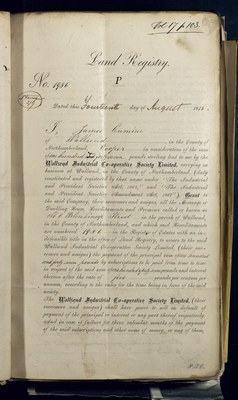 Vol 17 p 103.
Land Registry.
No. 1986
P
Dated this Fourteenth day of August 18
I, James
of Wallsend in the County of
Northumberland, in consideration of the sum
of pounds sterling lent to me by the
Wallsend Industrial Co-operative Society Limited, carrying on
business at Wallsend, in the County of Northumberland, (duly
constituted and registered by that name under "The Industrial
and Provident Societies Act, and "The Industrial
and Provident Societies Act, Grant to
the said Company, their successors and assigns, all the Messuage or
Dwelling House, Hereditaments and Premises called or known as
Street in the parish of Wallsend,
in the County of Northumberland, and which said Hereditaments
are numbered 1986 in the Register of Estates with an in-
defeasible title in the office of Land Registry, to secure to the said
Wallsend Industrial Co-operative Society Limited, (their suc-
cessors and assigns) the payment of the principal sum of
pounds by subscriptions to be paid from time to time
in respect of the said sum of pounds and interest
thereon after the rate of five pounds per centum per
annum, according to the rules for the time being in force of the said
society.
The Wallsend Industrial Co-operative Society Limited, (their
successors and assigns) shall have power to sell on default of
payment of the principal or interest or any part thereof respectively,
and in case of failure for three calendar months of the payment
of the said subscriptions and other sums of money, or any of them,